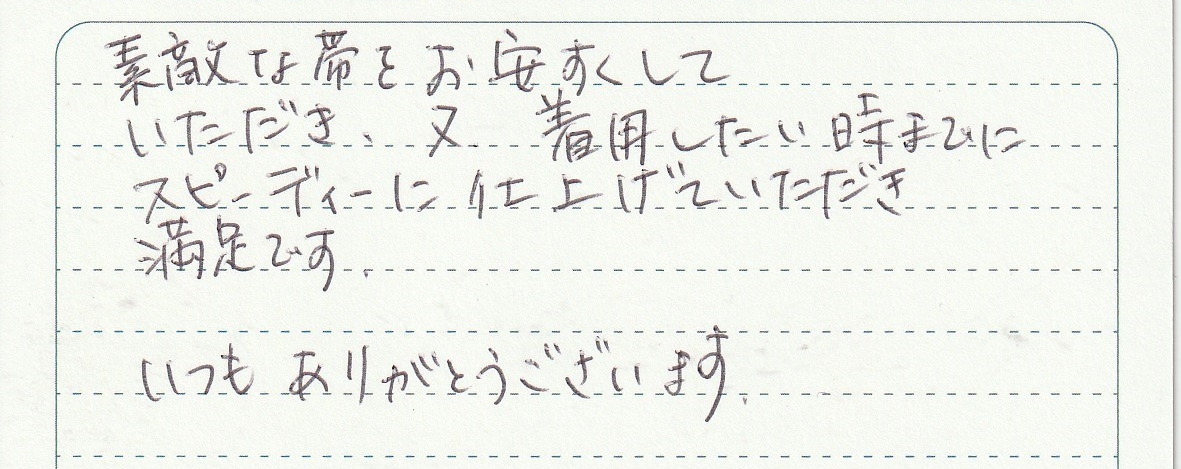 素敵な帯をお安すくして
いただき、又、着用したい時までに
スピーディーに仕上げていただき
満足です。
いつもありがとうございます。